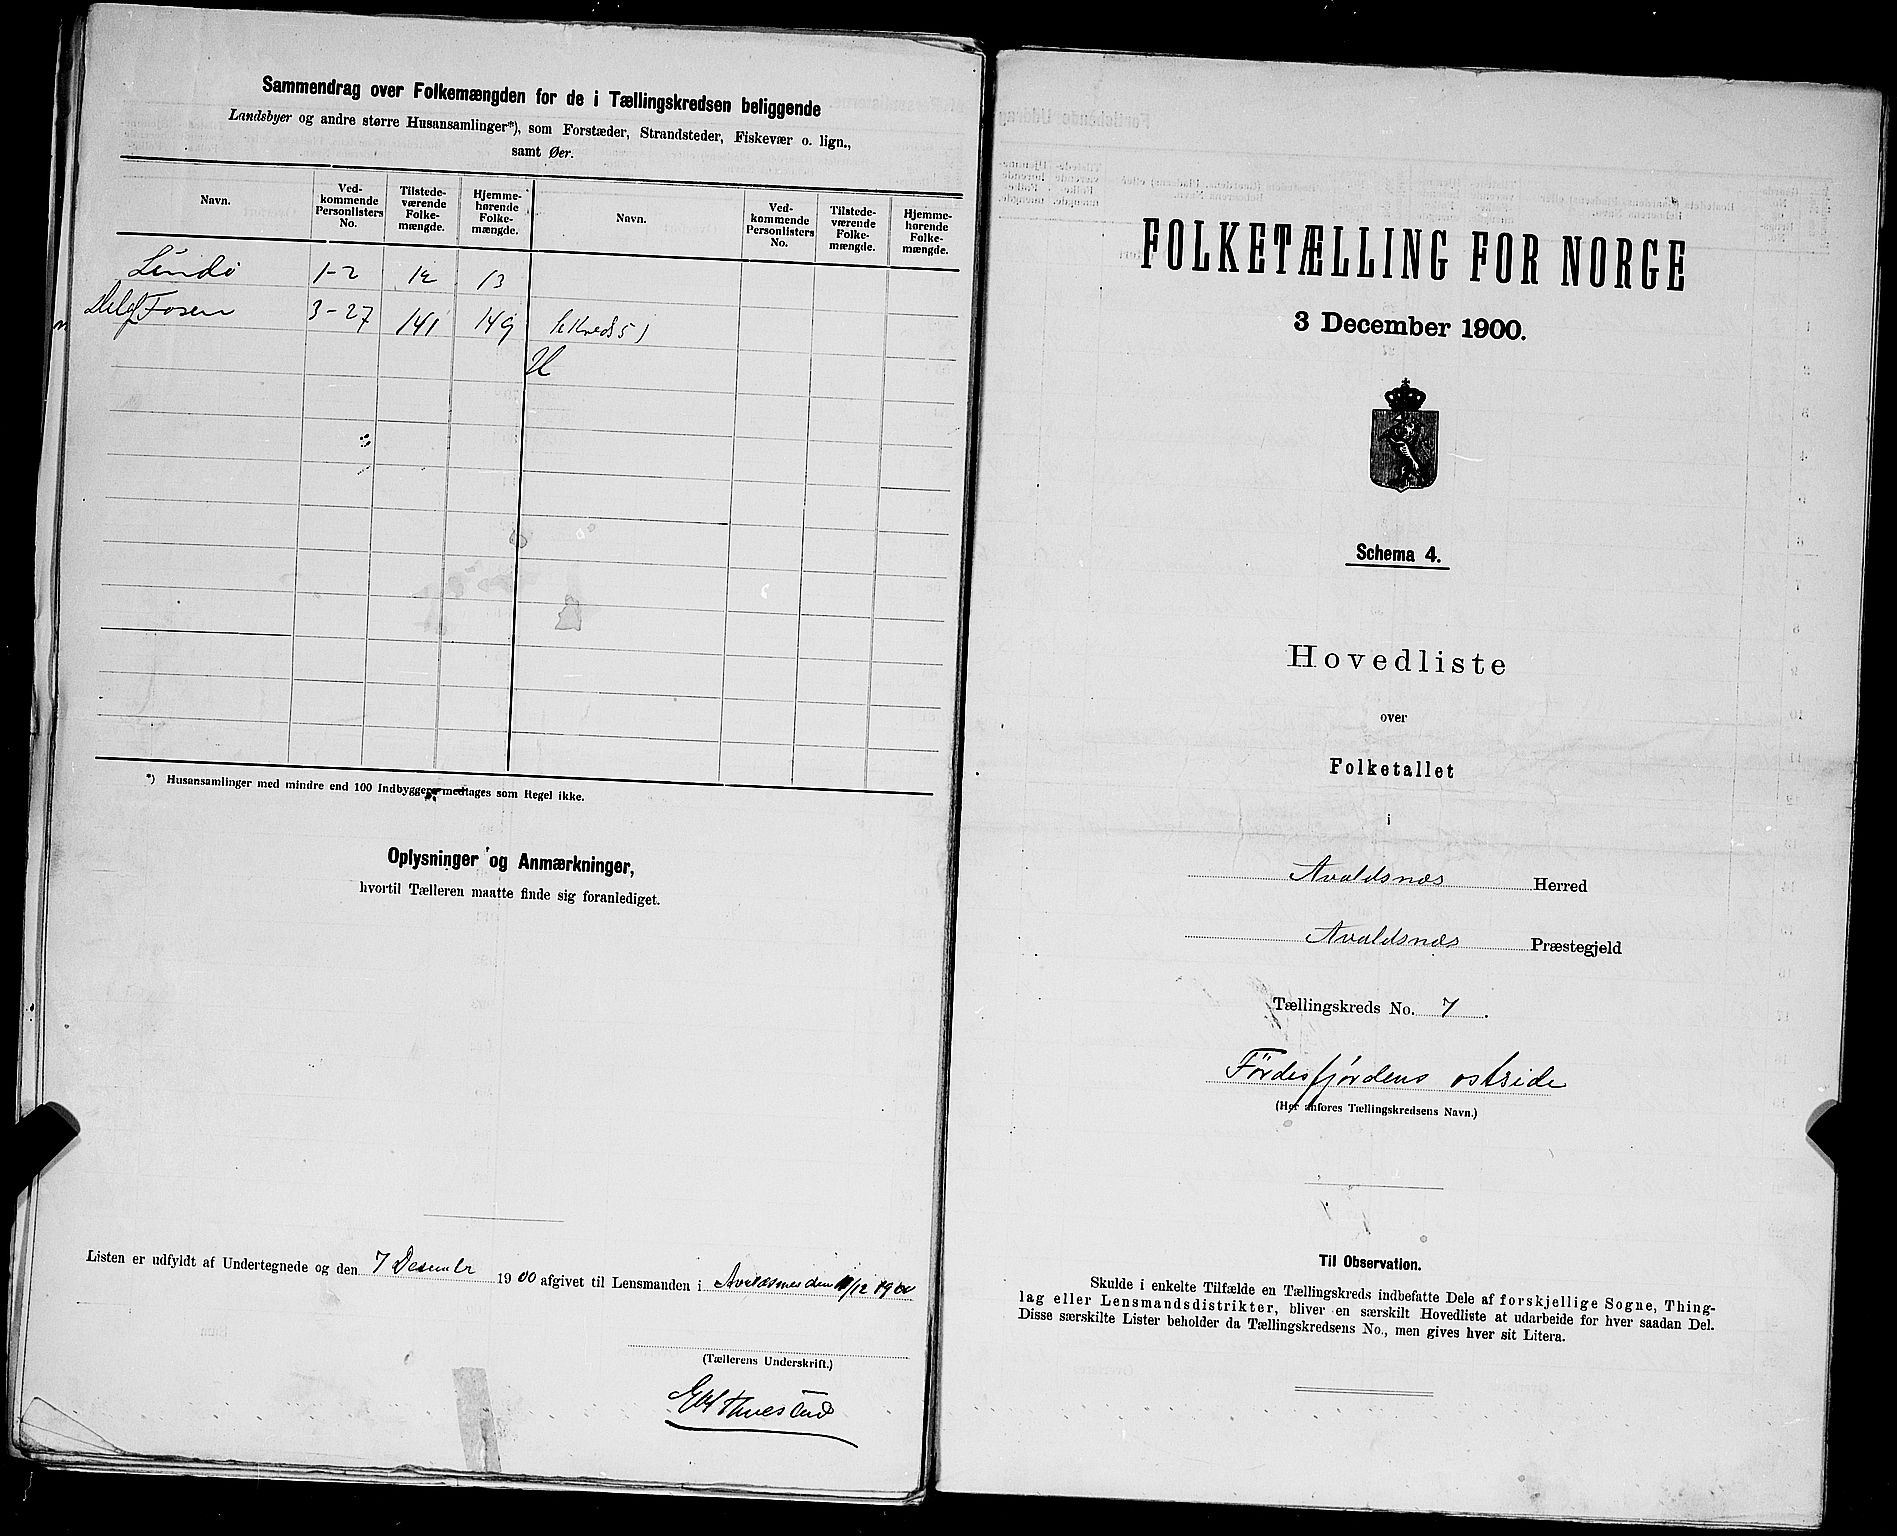 Sammendrag over Folkemængden for de i Tællingskredsen beliggende
Landsbyer og andre større Husansamlinger*), som Forstæder, Strandsteder, Fiskevær o. lign.,
samt Øer.
Navn. Ved-kommende Personlisters No. Tilstede-værende Folke-mængde. Hjemme-hørende Folke-mængde. Navn. Ved-kommende Personlisters No. Tilstede-værende Folke-mængde. Hjemme-hørende Folke-mængde.
Lindö 1-2 12 13
Del af Fosen 3-27 141 149
*) Husansamlinger med mindre end 100 Indbyggere medtages som Regel ikke.
Oplysninger og Anmærkninger,
hvortil Tælleren maatte finde sig foranlediget.
Listen er udfyldt af Undertegnede og den 7 Desember 1900 afgivet til Lensmanden i Avaldsnes den 11/12 1900
(Tællerens Underskrift.)
FOLKETÆLLING FOR NORGE
3 December 1900.
Schema 4.
Hovedliste
over
Folketallet
i
Avaldsnæs Herred
Avaldsnæs Præstegjeld
Tællingskreds No. 7.
Fördesfjördens ostside
(Her anføres Tællingskredsens Navn.)
Til Observation.
Skulde i enkelte Tilfælde en Tællingskreds indbefatte Dele af forskjellige Sogne, Thing-
lag eller Lensmandsdistrikter, bliver en særskilt Hovedliste at udarbeide for hver saadan Del.
Disse særskilte Lister beholder da Tællingskredsens No., men gives hver sit Litera.